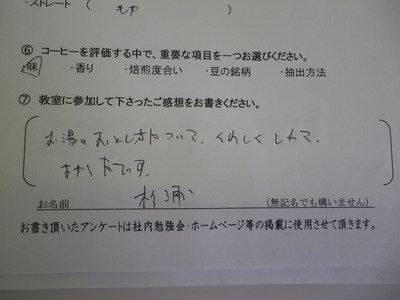 ・ストレート(モカ)
⑥ コーヒーを評価する中で、重要な項目を一つお選びください。
・味 ・香り ・焙煎度合い ・豆の銘柄 ・抽出方法
⑦ 教室に参加して下さったご感想をお書きください。
お湯のおとし方について、くわしくしれて、
よかったです。
お名前 杉浦 (無記名でも構いません)
お書き頂いたアンケートは社内勉強会・ホームページ等の掲載に使用させて頂きます。